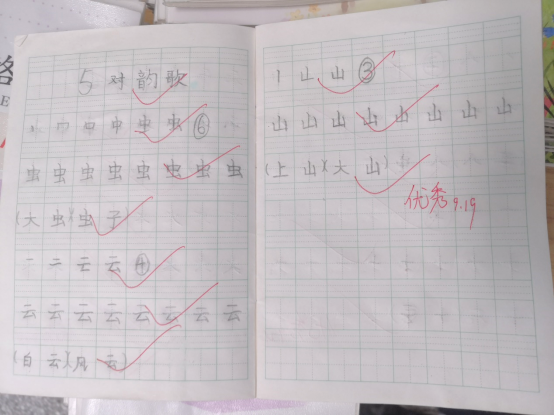 5 对韵歌
虫 ⑥
虫 虫 虫 虫 虫 虫 虫 虫
(大 虫)(虫 子
一 二 云 云 ④
云 云 云 云 云 云 云 云
(白 云)(风 云)
丨 山 山 ③
山 山 山 山 山 山 山 山
(上 山)(大 山)
优秀 9.19